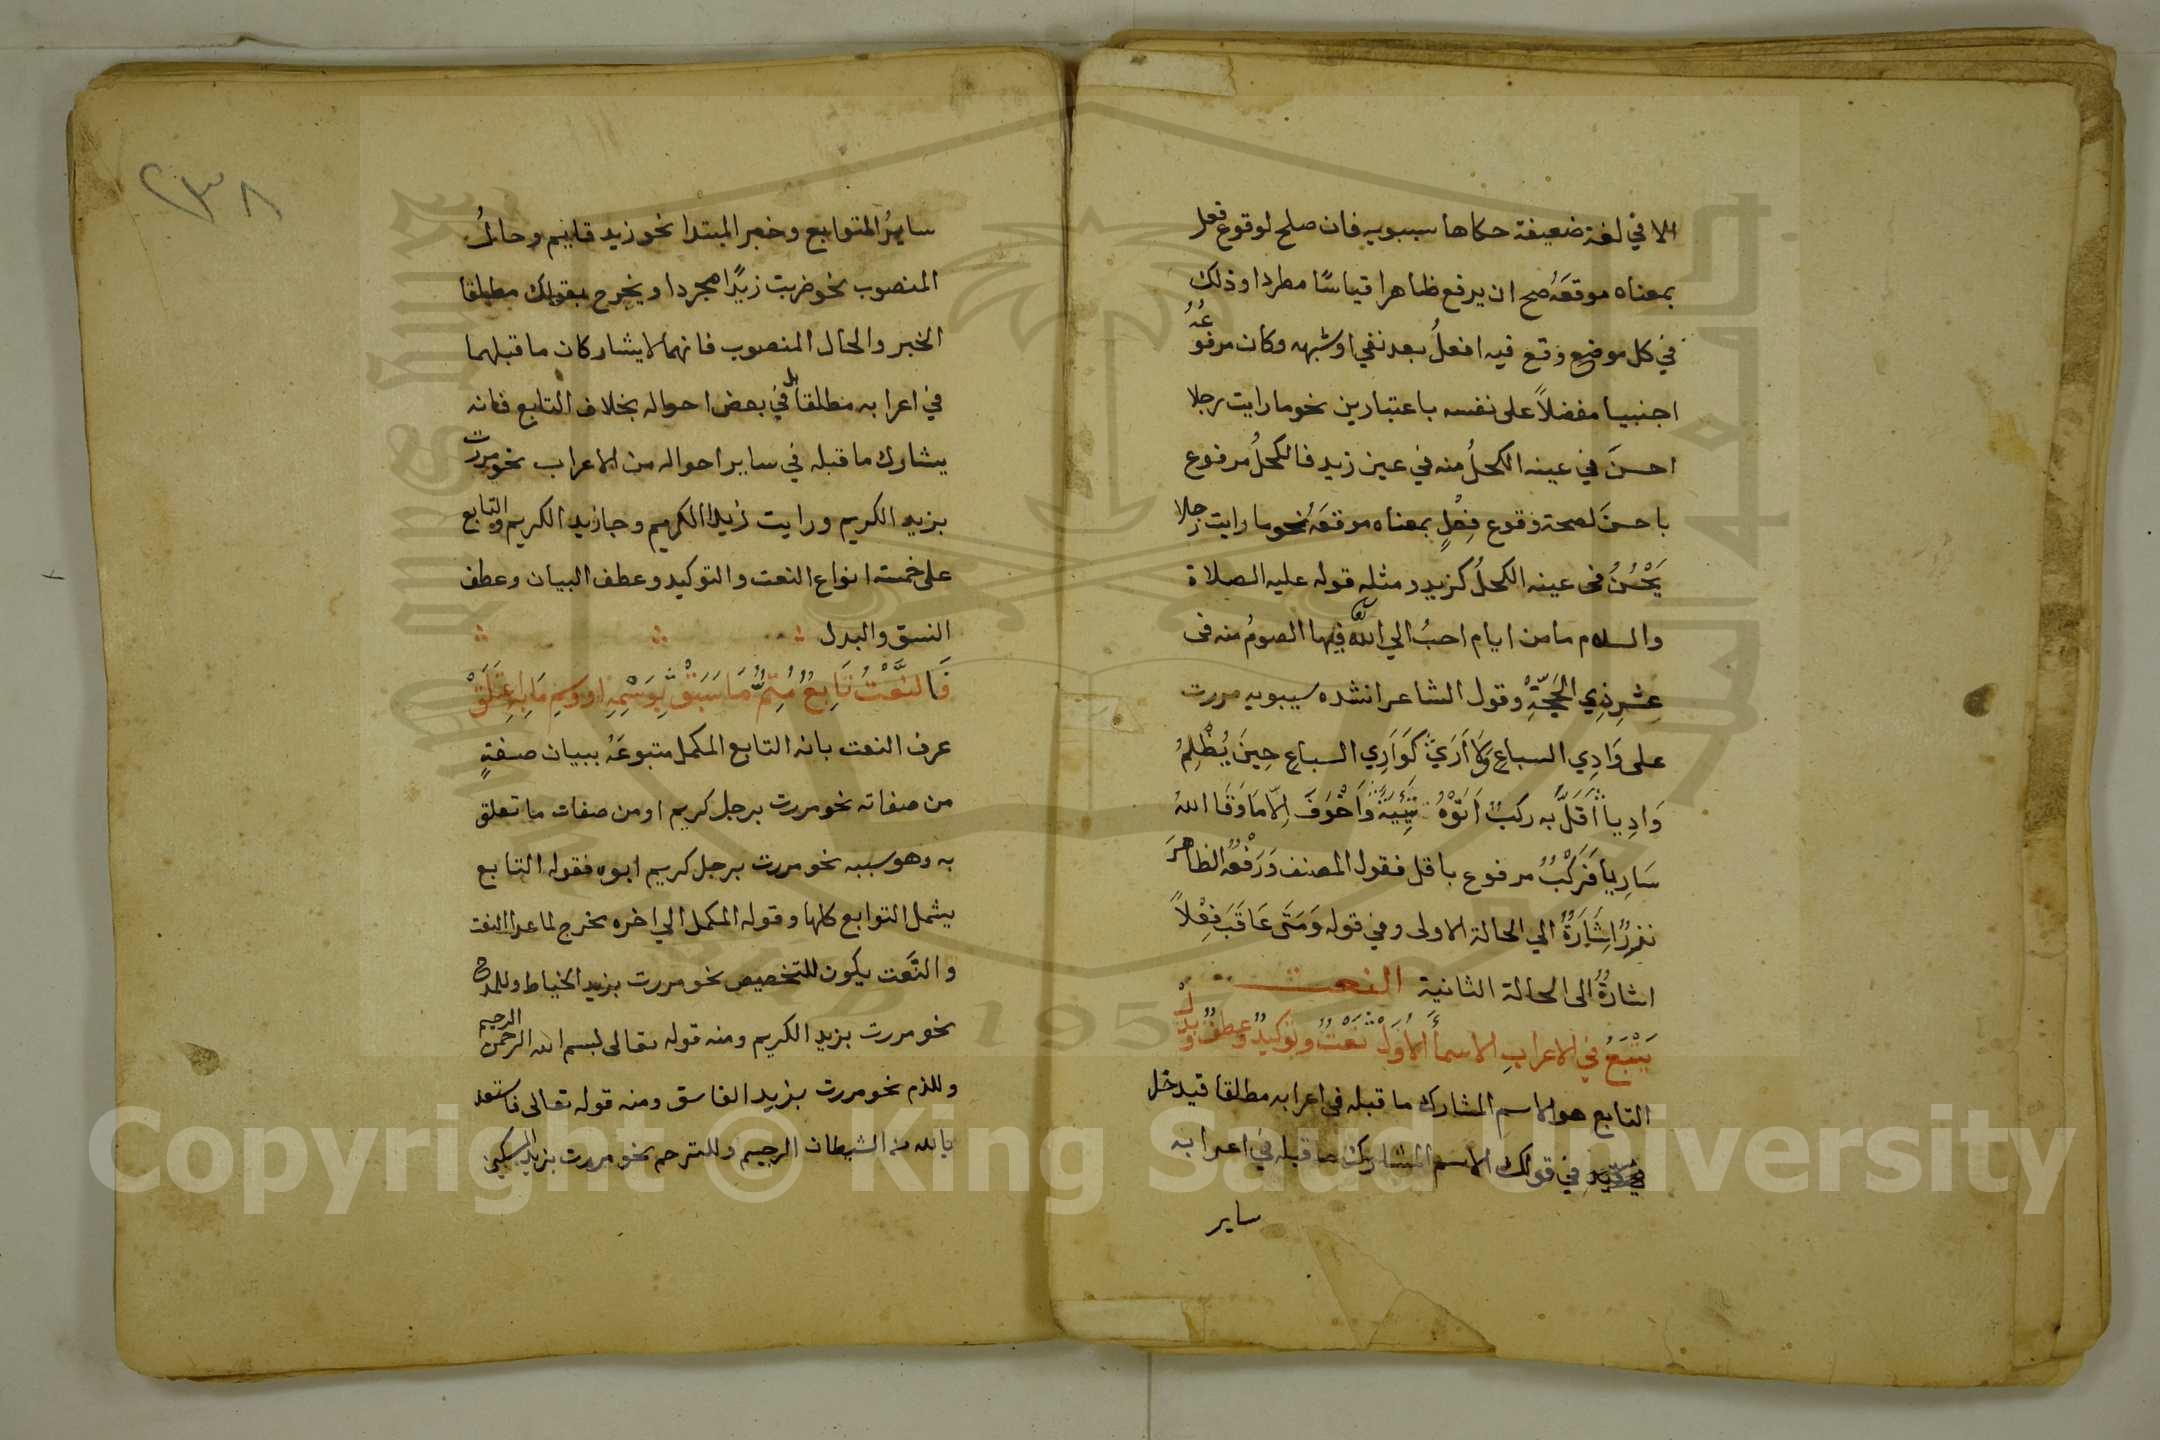 الا في لغة ضعيفة حكاها سيبويه فان صلح لوقوع فعل
بمعناه موقعَهُ صح ان يرفع ظاهرا قياسًا مطردا وذلك
في كل موضع وقع فيه افعلُ بعد نفي او شبهه وكان مرفوعُهُ
اجنبيا مفضلاً على نفسه باعتبارين نحو ما رايت رجلا
احسنَ في عينه الكحلُ منه في عين زيد فالكحلُ مرفوع
باحسنَ لصحة وقوع فِعْلٍ بمعناه موقعَهُ نحو ما رايت رجلا
يَحْسُنُ في عينه الكحلُ كزيد ومثله قوله عليه الصلاة
والسلام ما من ايام احبُ الي الله فيها الصومُ منه فى
عِشرِ ذِي الحَجّةِ وقول الشاعر انشده سيبويه مررت
على وَادِي السباعِ ولَا اَرَيَ كَوَادِي السباعِ حِينَ يُظْلِمُ
وَادِيا اَقَلَّ به ركبٌ اَتَوْهُ تَئِيَةً وَاَخْوَفَ اِلّا مَا وَقَا اللهُ
سَارِيا فَرَكْبٌ مرفوع باقل فقول المصنف وَرَفْعُهُ الظاهرَ
نزرٌ اِشَارَةٌ الي الحالة الاولى وفي قوله وَمَتَى عَاقَبَ فِعْلاً
اشارةٌ الى الحالة الثانية النعت
يَتْبَعُ في الاعرابِ الاسمأَ الاُوَلْ نَعْتٌ وتوكيدٌ وعطفٌ وبدلْ
التابع هو الاسم المشارك ما قبله في اعرابه مطلقا فيدخل
في قولك الاسم المشارك ما قبله في اعرابه
ساير
٢٣٨
سايرُ التوابع وخبر المبتدا نحو زيد قايم وحالُ
المنصوب نحو ضربت زيدًا مجردا ويخرج بقولك مطلقا
الخبر والحال المنصوب فانهما لا يشاركان ما قبلهما
في اعرابه مطلقا بل في بعض احواله بخلاف التابع فانه
يشارك ما قبله في ساير احواله من الاعراب نحو مررت
بزيد الكريم ورايت زيدا الكريم وجا زيد الكريم والتابع
على خمسة انواع النعت والتوكيد وعطف البيان وعطف
النسق والبدل
فَالنَّعْتُ تَابِعٌ مُتِمٌّ مَا سَبَقْ بِوَسْمِهِ او وسمِ مَا بِهِ اعْتَلَقْ
عرف النعت بانه التابع المكمل متبوعَهُ ببيان صفةٍ
من صفاته نحو مررت برجل كريم او من صفات ما تعلق
به وهو سببه نحو مررت برجل كريم ابوه فقوله التابع
يشمل التوابع كلها وقوله المكمل الي اخره مخرج لما عدا النعت
والنَّعت يكون للتخصيص نحو مررت بزيد الخياط وللمدح
نحو مررت بزيد الكريم ومنه قوله تعالى بسم الله الرحمن الرحيم
وللذم نحو مررت بزيد الفاسق ومنه قوله تعالى فاستعذ
بالله من الشيطان الرجيم وللترحم نحو مررت بزيد المسكين
Copyright © King Saud University
1957